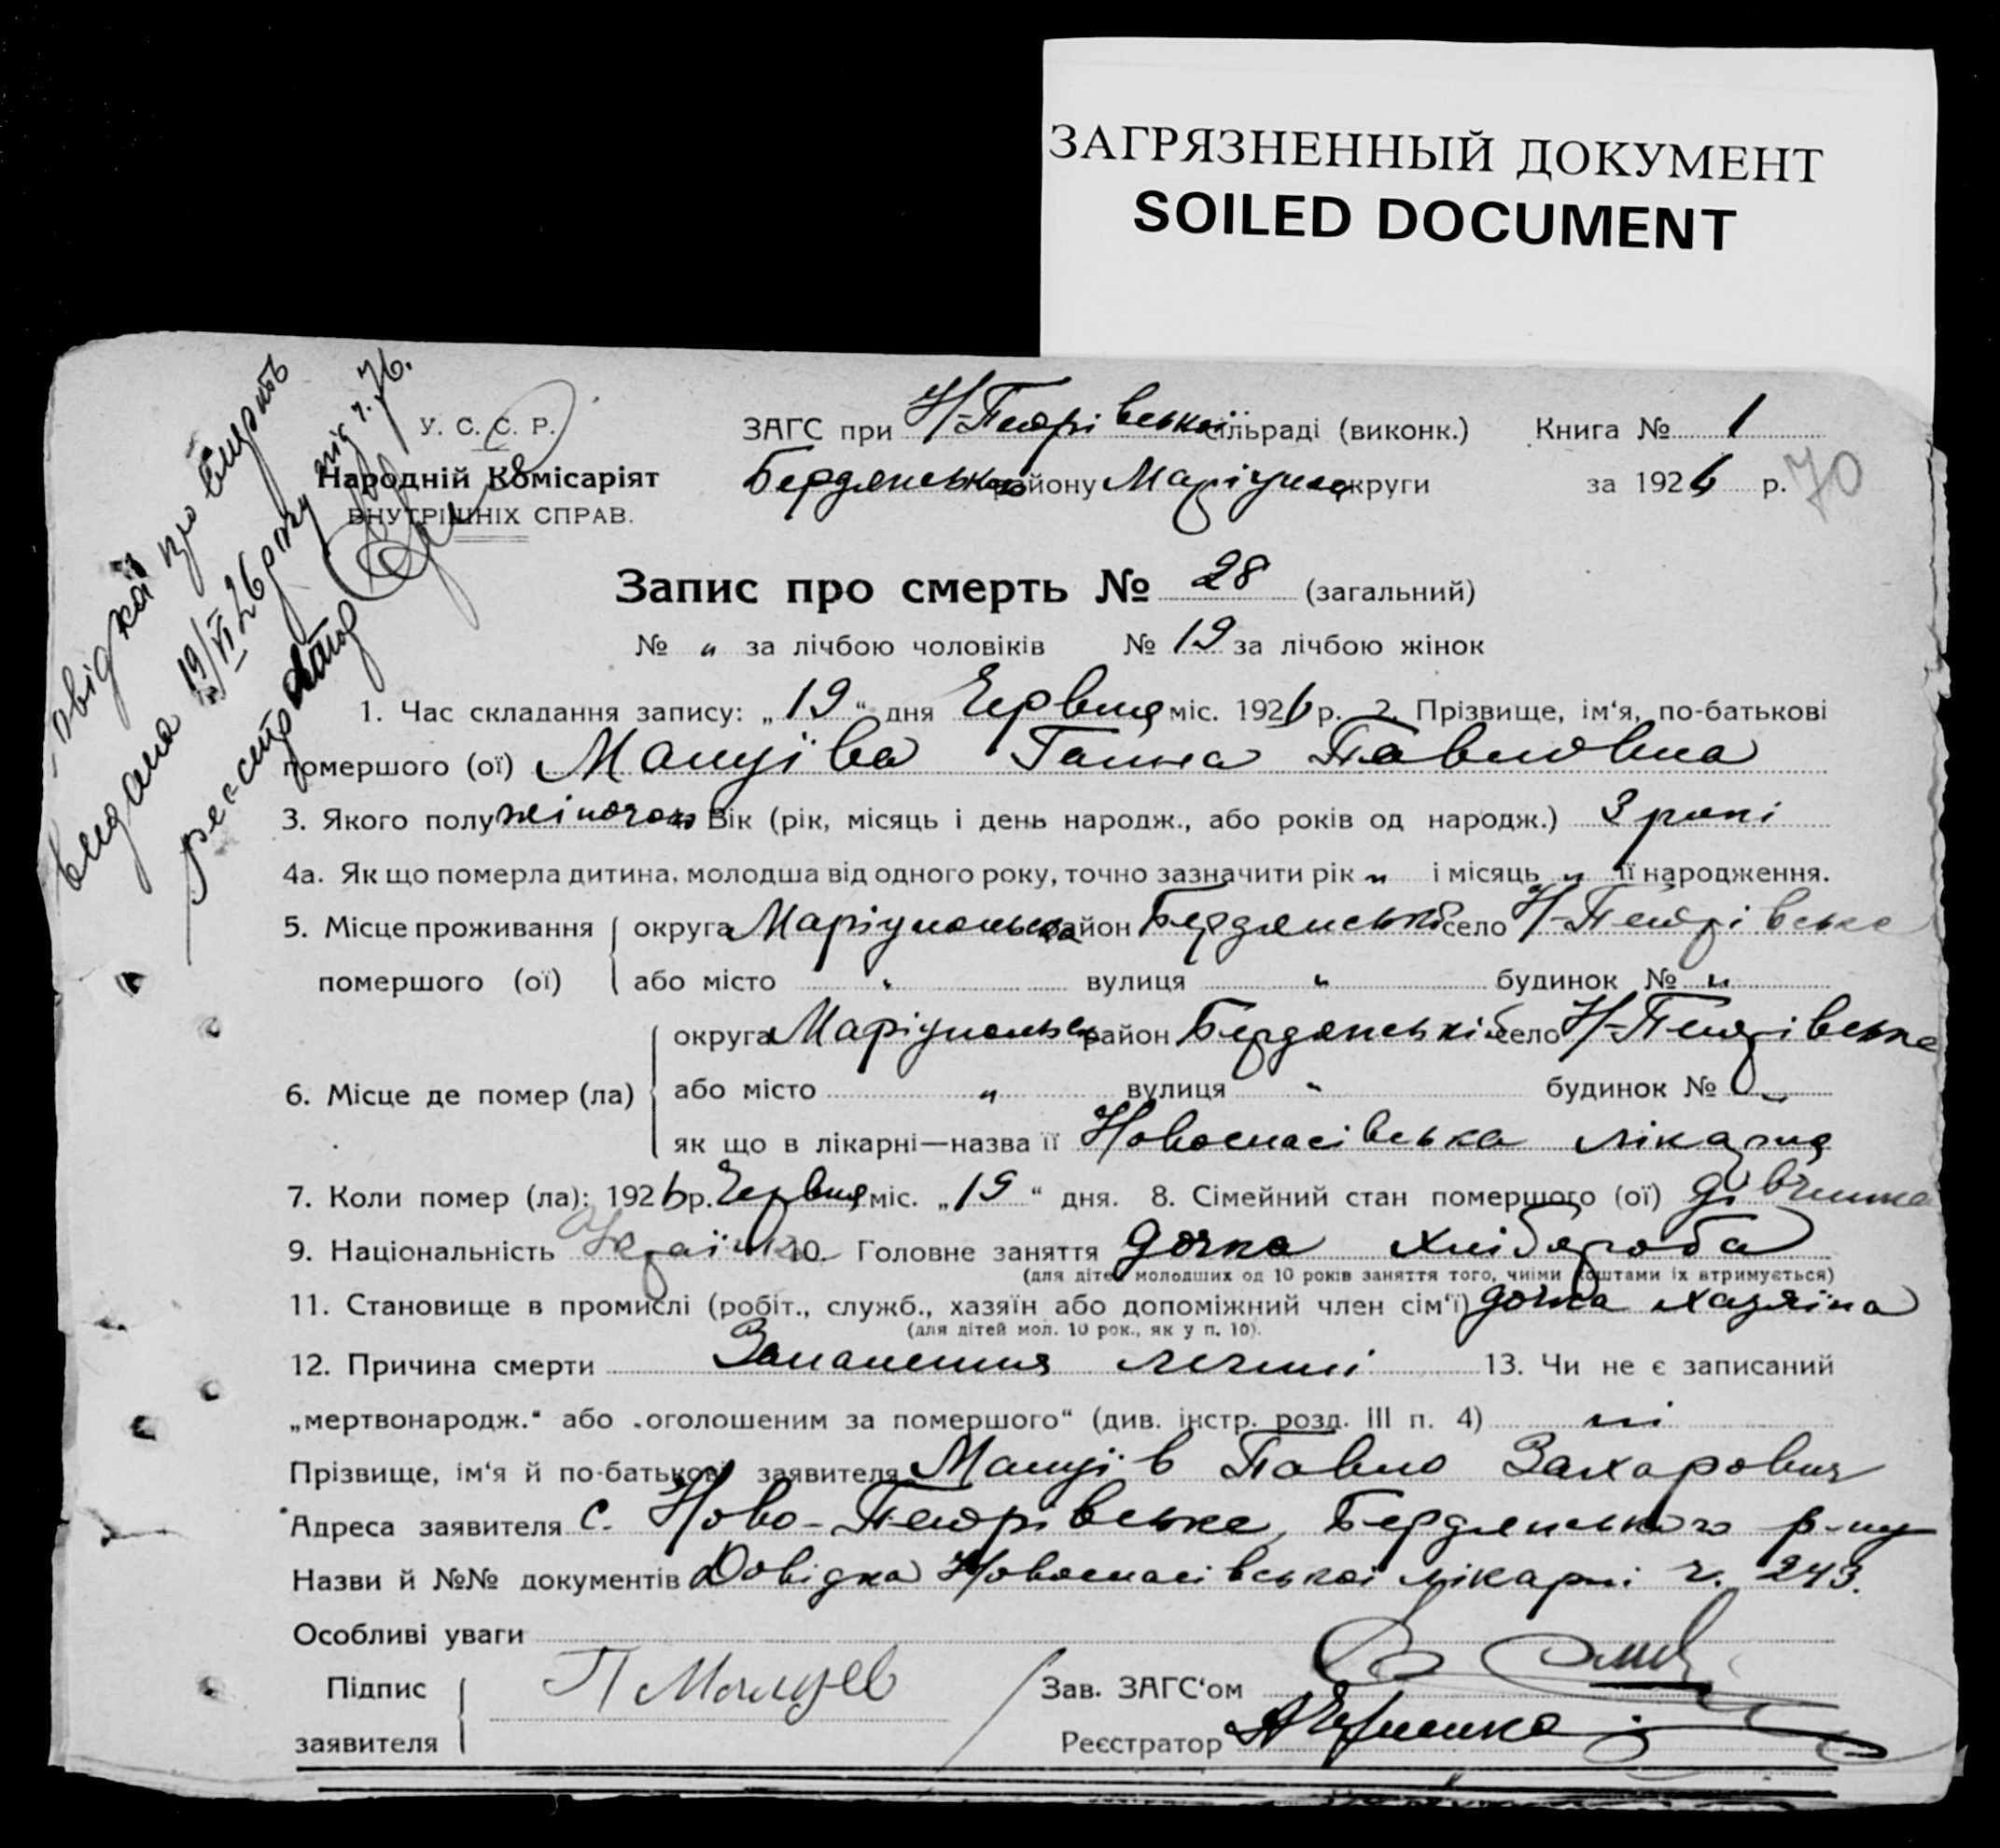 ЗАГРЯЗНЕННЫЙ ДОКУМЕНТ
SOILED DOCUMENT
У. С. С. Р.
Народній Комісаріят
ВНУТРІШНІХ СПРАВ.
ЗАГС при Н-Петрівській сільраді (виконк.) Книга № 1
Бердянського району Маріупол округи за 1926 р. 70
про смерть
видана 19/VI 26 року під ч. 76.
Запис про смерть № 28 (загальний)
№ „ за лічбою чоловіків № 19 за лічбою жінок
1. Час складання запису: „19“ дня Червня міс. 1926 р. 2. Прізвище, ім‘я, по-батькові
помершого (ої) Мануїва Ганна Павловна
3. Якого полу жіночого Вік (рік, місяць і день народж., або років од народж.) 3 роки
4а. Як що померла дитина, молодша від одного року, точно зазначити рік „ і місяць „ її народження.
5. Місце проживання помершого (ої)
округа Маріупольська район Бердянський село Н-Петрівське
або місто „ вулиця „ будинок № „
6. Місце де помер (ла)
округа Маріупольськ район Бердянській село Н-Петрівське
або місто „ вулиця „ будинок №
як що в лікарні—назва її Новоспасівська лікарня
7. Коли помер (ла): 1926 р. Червня міс. „19“ дня. 8. Сімейний стан помершого (ої) дівчинка
9. Національність Україн 10. Головне заняття дочка хлібороба
(для дітей молодших од 10 років заняття того, чиїми коштами їх втримується)
11. Становище в промислі (робіт., служб., хазяїн або допоміжний член сім‘ї) дочка хазяїна
(для дітей мол. 10 рок., як у п. 10).
12. Причина смерти Запалення легені 13. Чи не є записаний
„мертвонародж.“ або „оголошеним за помершого“ (див. інстр. розд. III п. 4) ні
Прізвище, ім‘я й по-батькові заявителя Мануїв Павло Захарович
Адреса заявителя с. Ново-Петрівське, Бердянського р-ну
Назви й №№ документів Довідка Новоспасівської лікарні ч. 243.
Особливі уваги
Підпис заявителя П
Зав. ЗАГС‘ом
Реєстратор